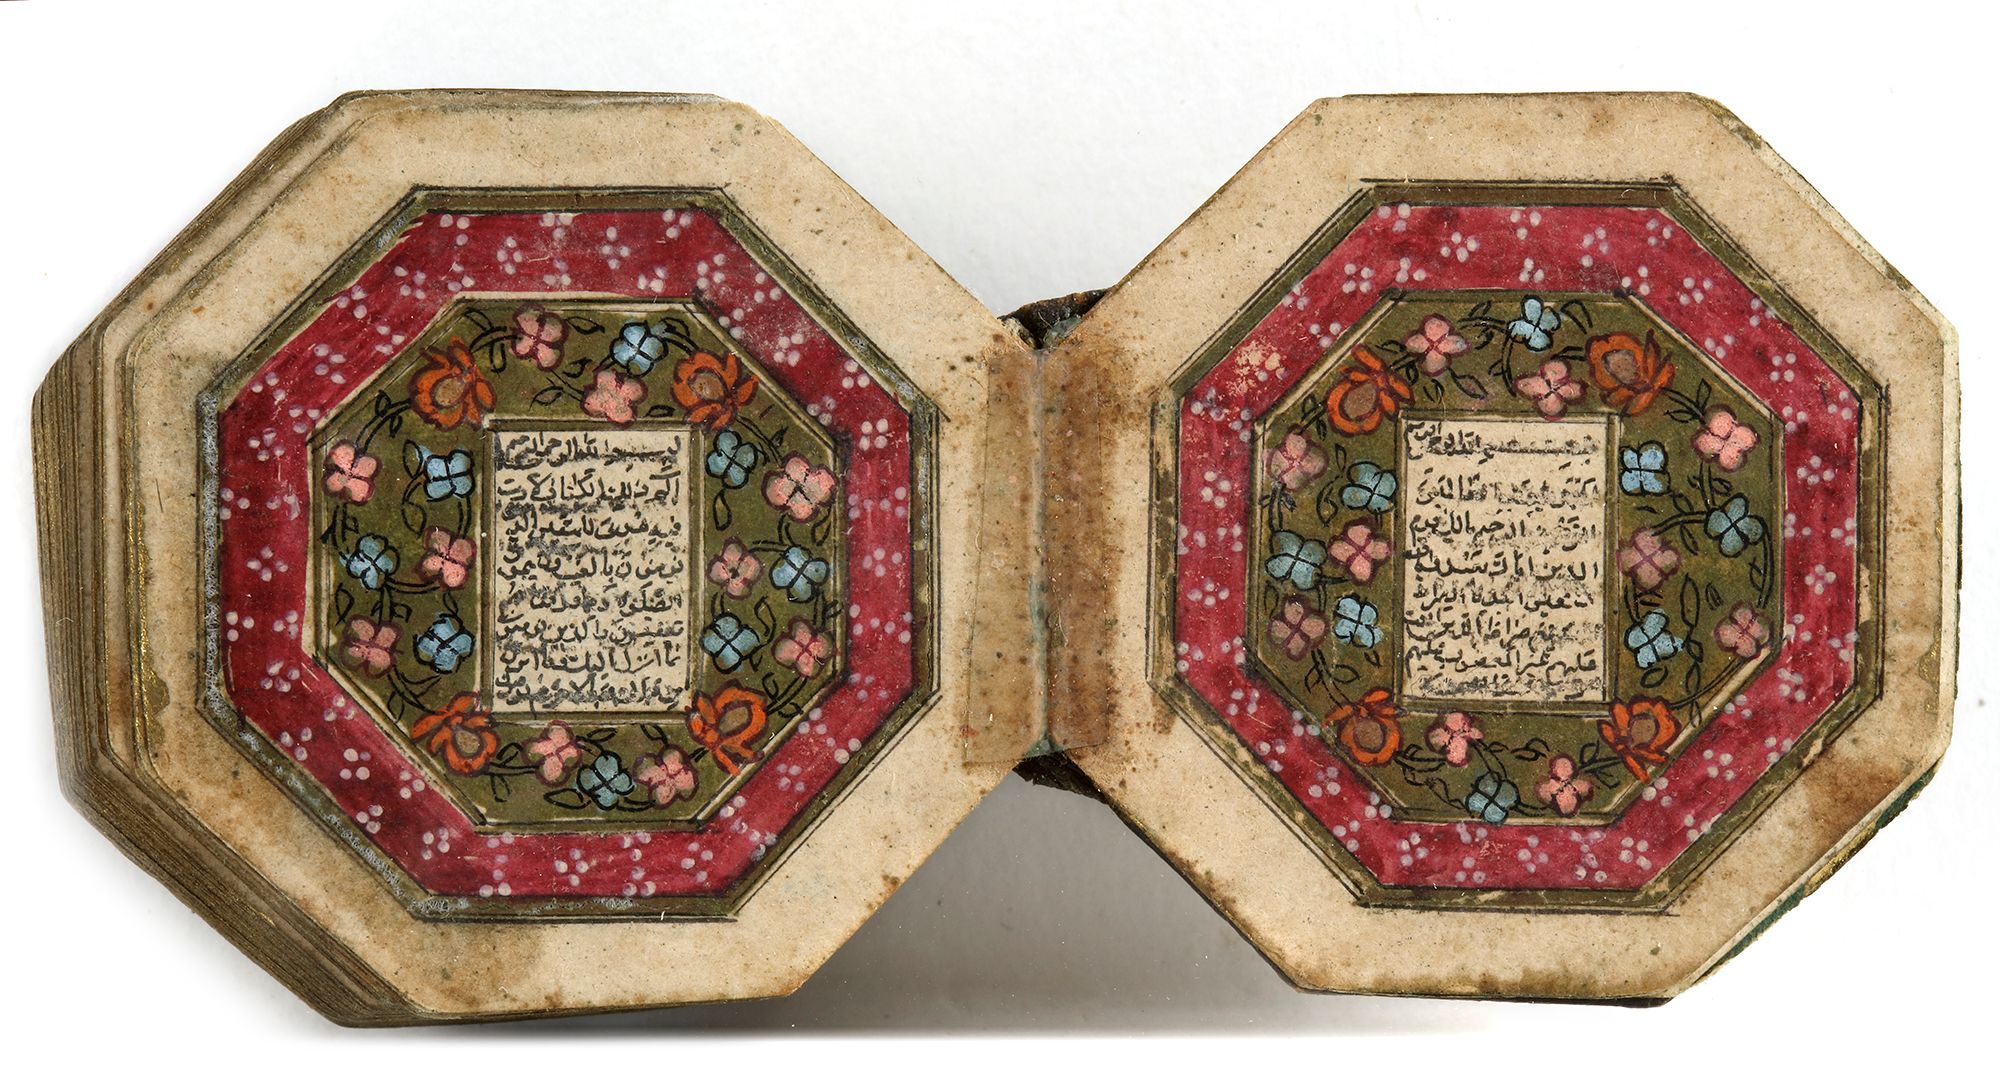 بسم الله الرحمن الرحيم
الحمد لله رب العالمين
الرحمن الرحيم مالك يوم
الدين اياك نعبد وايا
ك نستعين اهدنا الصراط
المستقيم صراط الذين انعمت
عليهم غير المغضوب عليهم
ولا الضالين
بسم الله الرحمن الرحيم
الم ذلك الكتاب لا ريب
فيه هدى للمتقين الذين
يؤمنون بالغيب ويقيمون
الصلوة ومما رزقناهم
ينفقون والذين يؤمنون
بما انزل اليك وما انزل
من قبلك